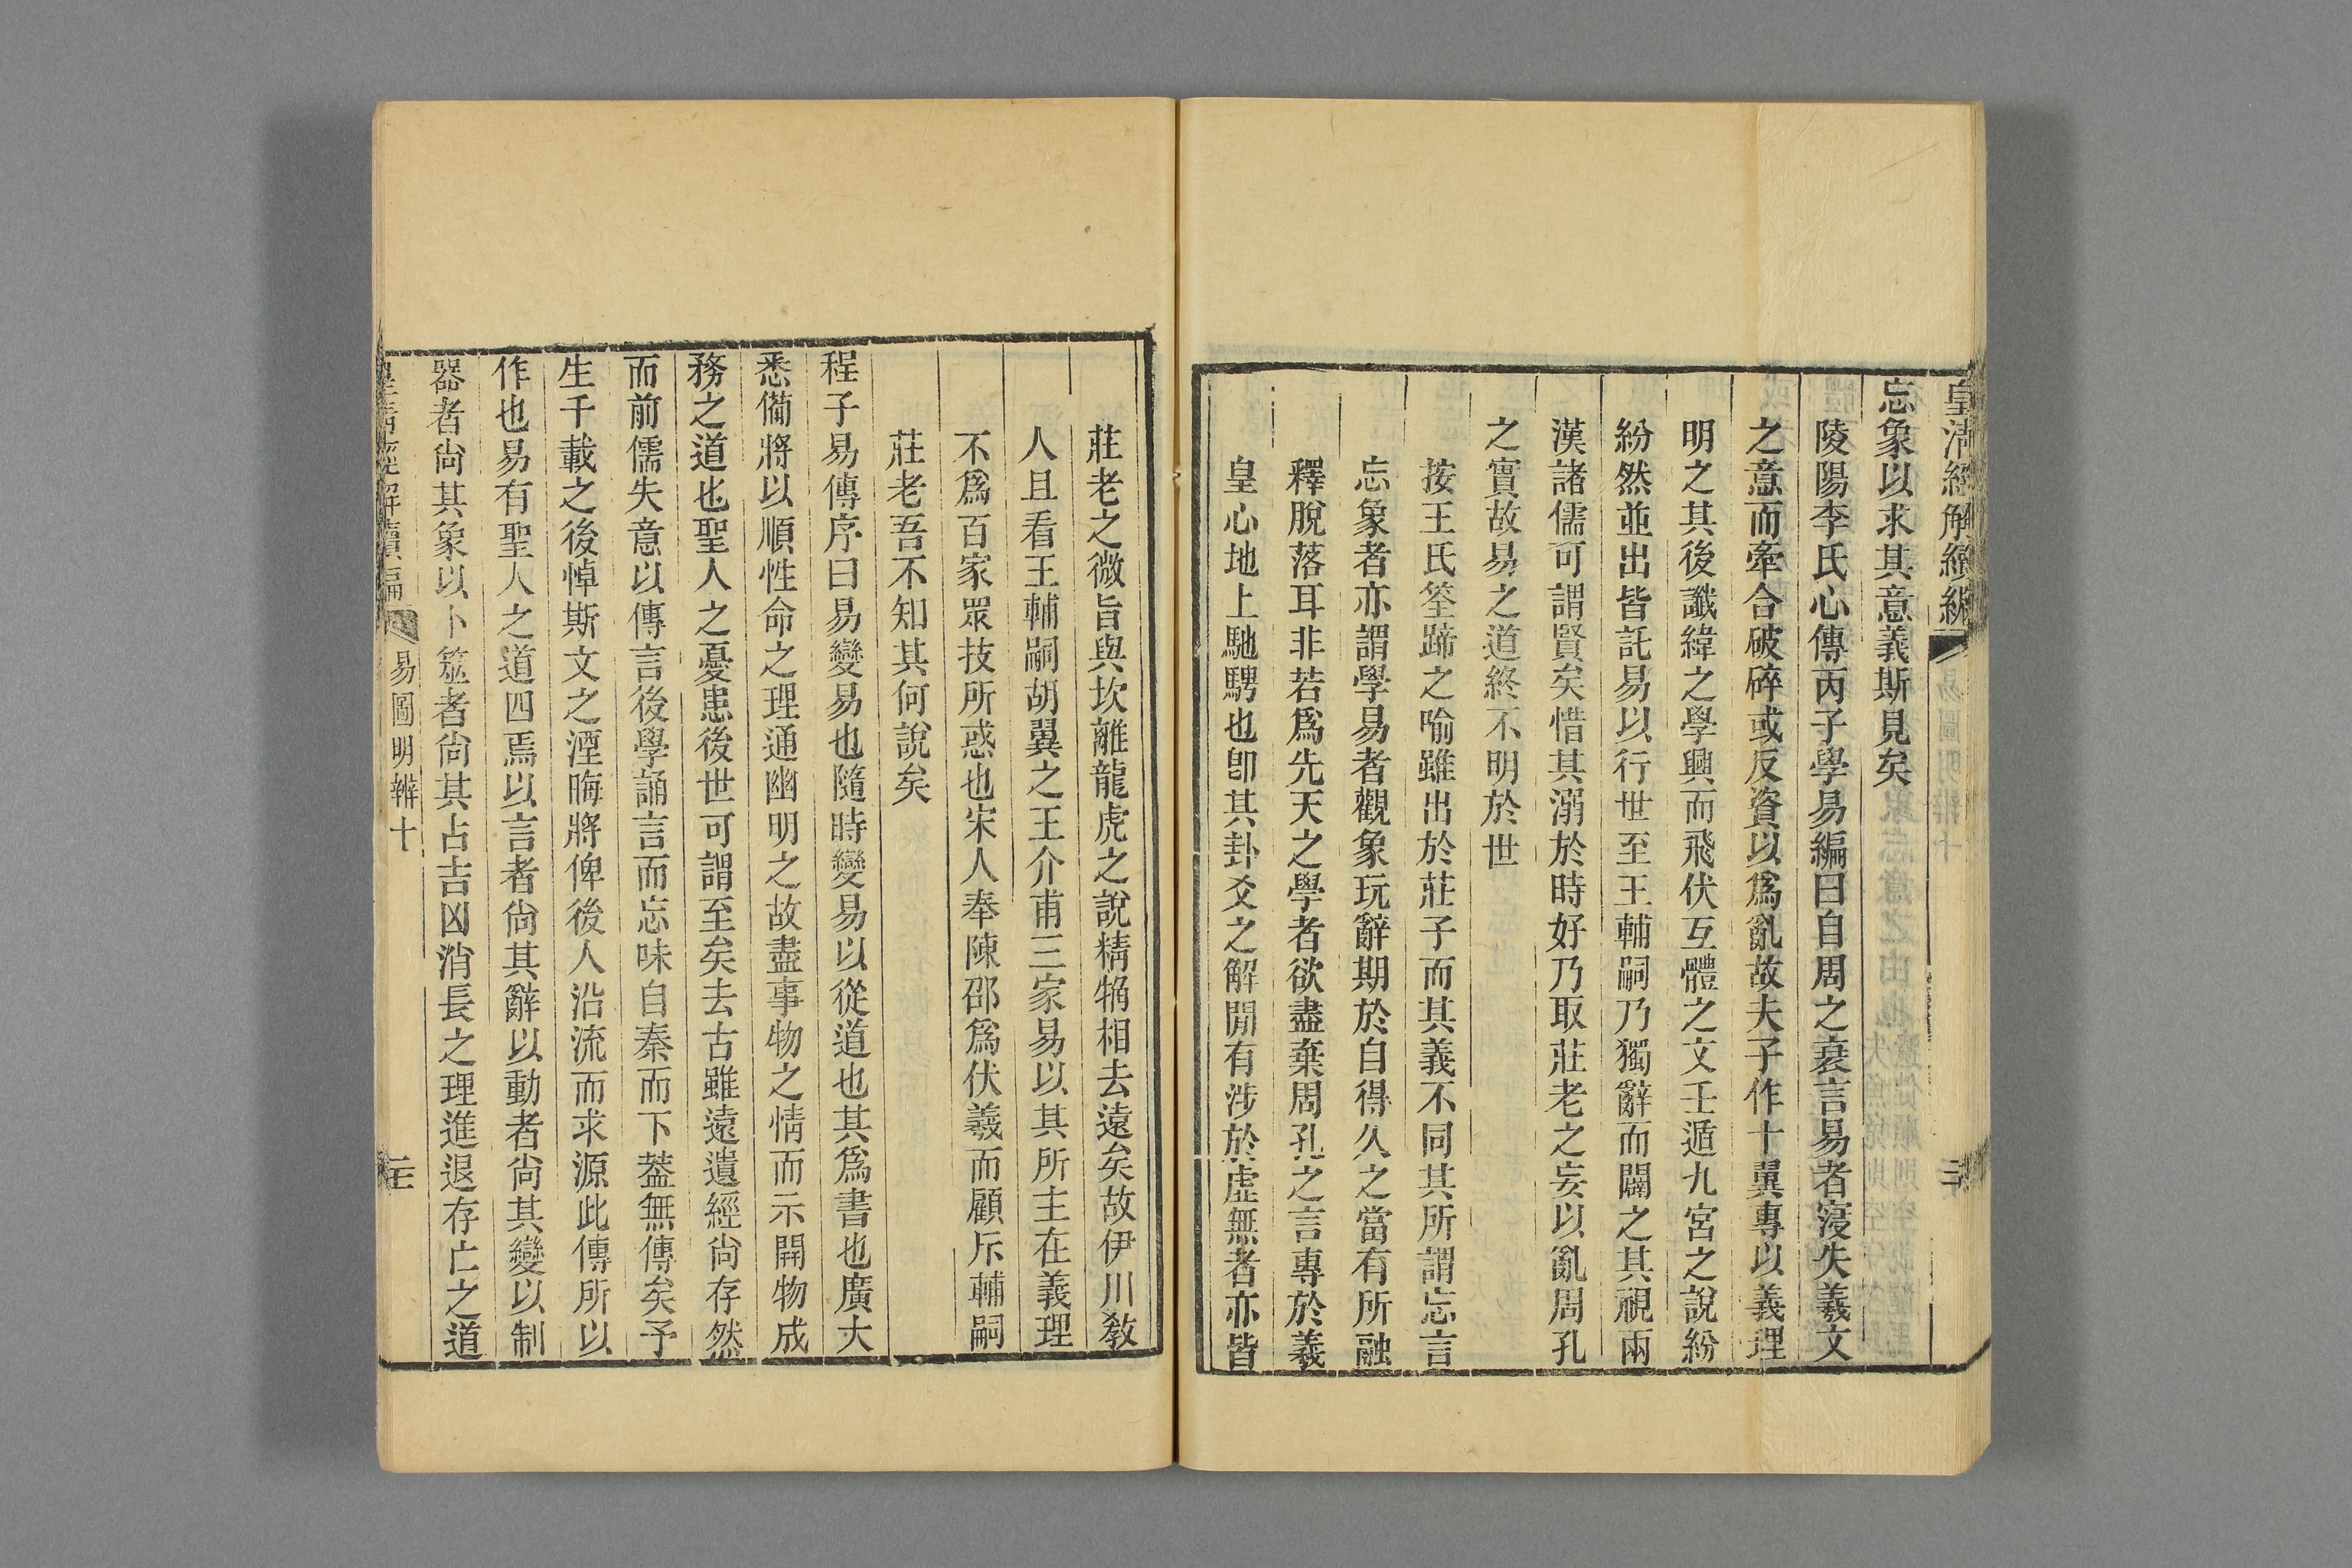 皇清經解續編 易圖明辨十
忘象以求其意義斯見矣
陵陽李氏心傳丙子學易編曰自周之衰言易者寖失羲文
之意而牽合破碎或反資以爲亂故夫子作十翼專以義理
明之其後讖緯之學興而飛伏互體之文壬遁九宮之說紛
紛然並出皆託易以行世至王輔嗣乃獨辭而闢之其視兩
漢諸儒可謂賢矣惜其溺於時好乃取莊老之妄以亂周孔
之實故易之道終不明於世
按王氏筌蹄之喻雖出於莊子而其義不同其所謂忘言
忘象者亦謂學易者觀象玩辭期於自得久之當有所融
釋脫落耳非若爲先天之學者欲盡棄周孔之言專於羲
皇心地上馳騁也卽其卦爻之解閒有涉於虛無者亦皆
莊老之微旨與坎離龍虎之說精觕相去遠矣故伊川敎
人且看王輔嗣胡翼之王介甫三家易以其所主在義理
不爲百家眾技所惑也宋人奉陳邵爲伏羲而顧斥輔嗣
莊老吾不知其何說矣
程子易傳序曰易變易也隨時變易以從道也其爲書也廣大
悉備將以順性命之理通幽明之故盡事物之情而示開物成
務之道也聖人之憂患後世可謂至矣去古雖遠遺經尙存然
而前儒失意以傳言後學誦言而忘味自秦而下葢無傳矣予
生千載之後悼斯文之湮晦將俾後人沿流而求源此傳所以
作也易有聖人之道四焉以言者尙其辭以動者尙其變以制
器者尙其象以卜筮者尙其占吉凶消長之理進退存亡之道
皇清經解續編 易圖明辨十